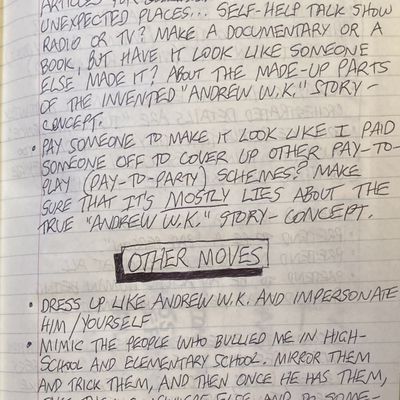 ARTICLES FOR
UNEXPECTED PLACES... SELF-HELP TALK SHOW
RADIO OR TV? MAKE A DOCUMENTARY OR A
BOOK, BUT HAVE IT LOOK LIKE SOMEONE
ELSE MADE IT? ABOUT THE MADE-UP PARTS
OF THE INVENTED "ANDREW W.K." STORY-
CONCEPT.
• PAY SOMEONE TO MAKE IT LOOK LIKE I PAID
SOMEONE OFF TO COVER UP OTHER PAY-TO-
PLAY (PAY-TO-PARTY) SCHEMES? MAKE
SURE THAT IT'S MOSTLY LIES ABOUT THE
TRUE "ANDREW W.K." STORY-CONCEPT.
OTHER MOVES
• DRESS UP LIKE ANDREW W.K. AND IMPERSONATE
HIM/YOURSELF
• MIMIC THE PEOPLE WHO BULLIED ME IN HIGH-
SCHOOL AND ELEMENTARY SCHOOL. MIRROR THEM
AND TRICK THEM, AND THEN ONCE HE HAS THEM,
ELSE AND DO SOME-